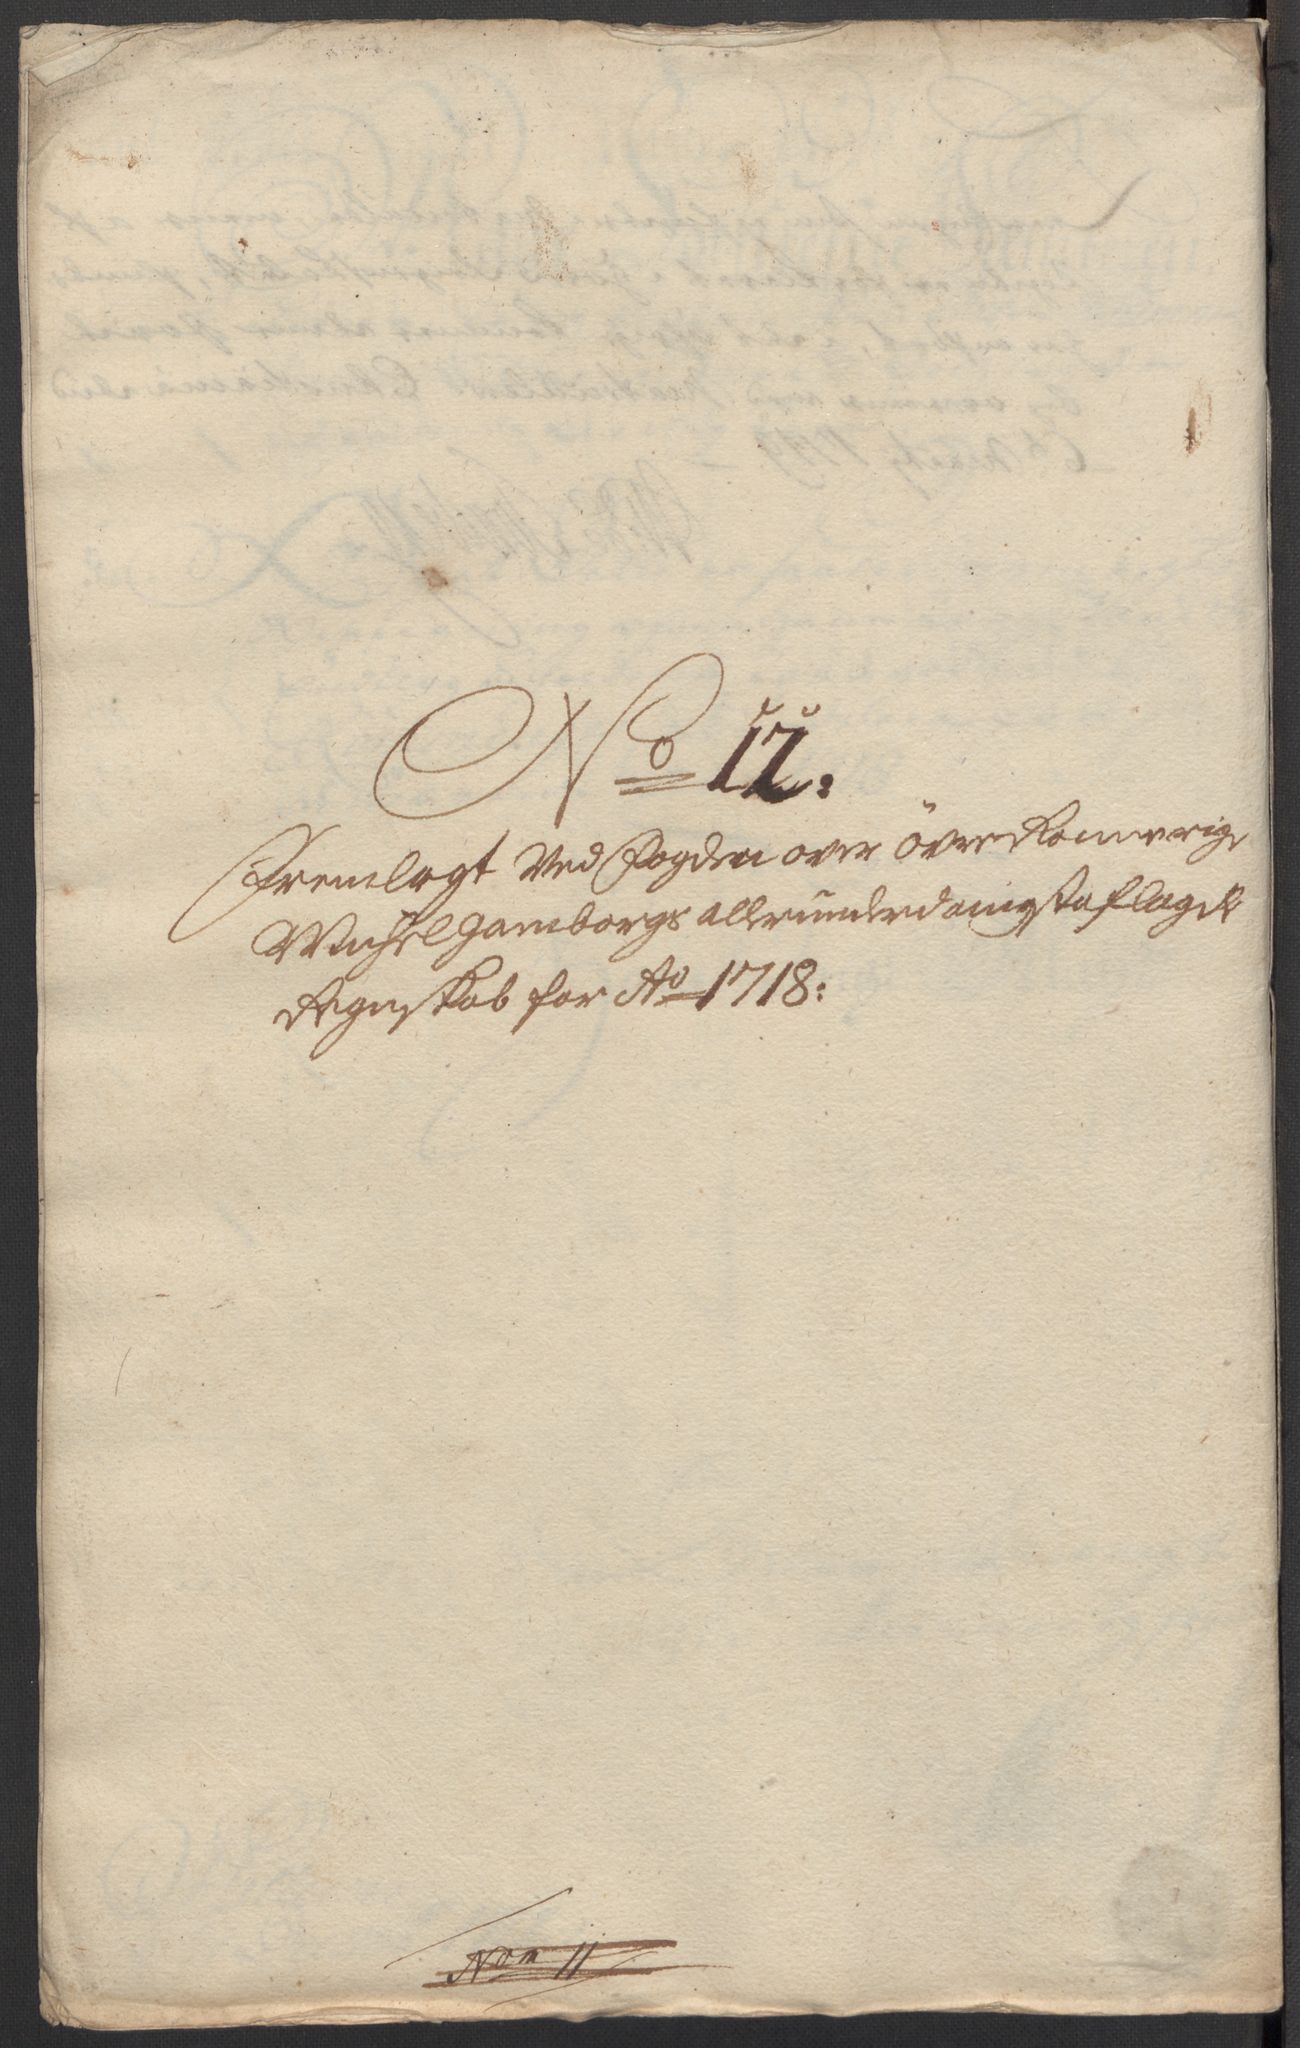 No 17:
Fremlagt Ved Fogden over Öwre Romerige
Michel Gamborgs allerunderdanigst aflagde
Regnskab for Ao 1718:
Nom 11